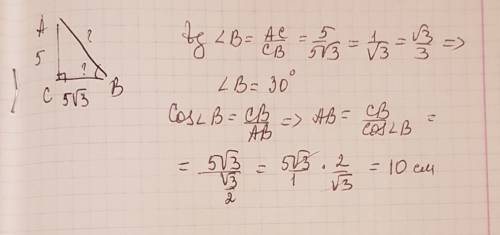 A
?
5
?
C
B
5√3
tg ∠B = AC/CB = 5/5√3 = 1/√3 = √3/3 =>
∠B = 30°
Cos∠B = CB/AB => AB = CB/Cos∠B =
= 5√3/(√3/2) = 5√3/1 · 2/√3 = 10 см